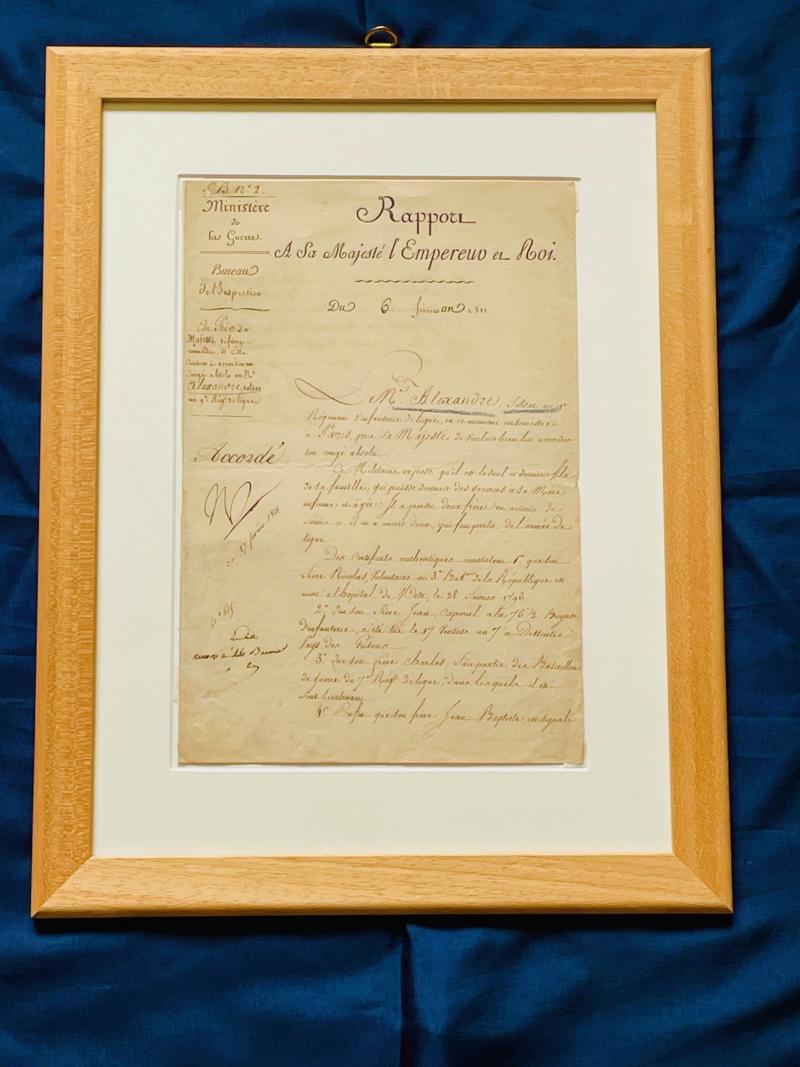 B. N° 2.
Ministère
de
la Guerre.
Bureau
de l'Inspection
On Prie Sa
Majesté de faire
connaître si Elle
Consent à accorder un
Congé absolu au Mr
Alexandre, soldat
au 9e Régt de ligne
Accordé
N
ce 17 février 1811
Rapport
A Sa Majesté l'Empereur et Roi.
Du 6 février an 1811
Mr Alexandre, Soldat au
Régiment d'infanterie de ligne, en ce moment en semestre
à Paris, prie Sa Majesté de vouloir bien lui accorder
son congé absolu.
Ce Militaire expose qu'il est le seul et dernier fils
de sa famille, qui puisse donner des secours à sa Mère
infirme et âgée. Il a perdu deux frères en activité de
service et il en a encore deux, qui font partie de l'armée de
ligne.
Des certificats authentiques constatent 1° que son
frère Nicolas, Volontaire au 3e Baton de la République est
mort à l'hôpital de Metz, le 28 février 1793.
2° Que son frère Jean, Caporal à la 76e ½ Brigade
d'infanterie, a été tué le 17 Ventose an 7 à
Pays des Grisons
3° Que son frère Charles, fait partie des Bataillons
de guerre du 7e Régt de ligne, dans lesquels il est
Sous lieutenant
4° Enfin que son frère Jean Baptiste, est signalé